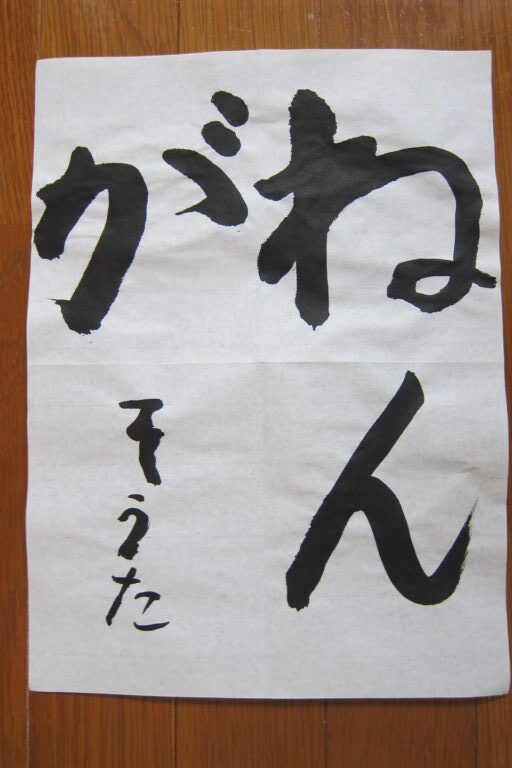 ねん
が
そうた